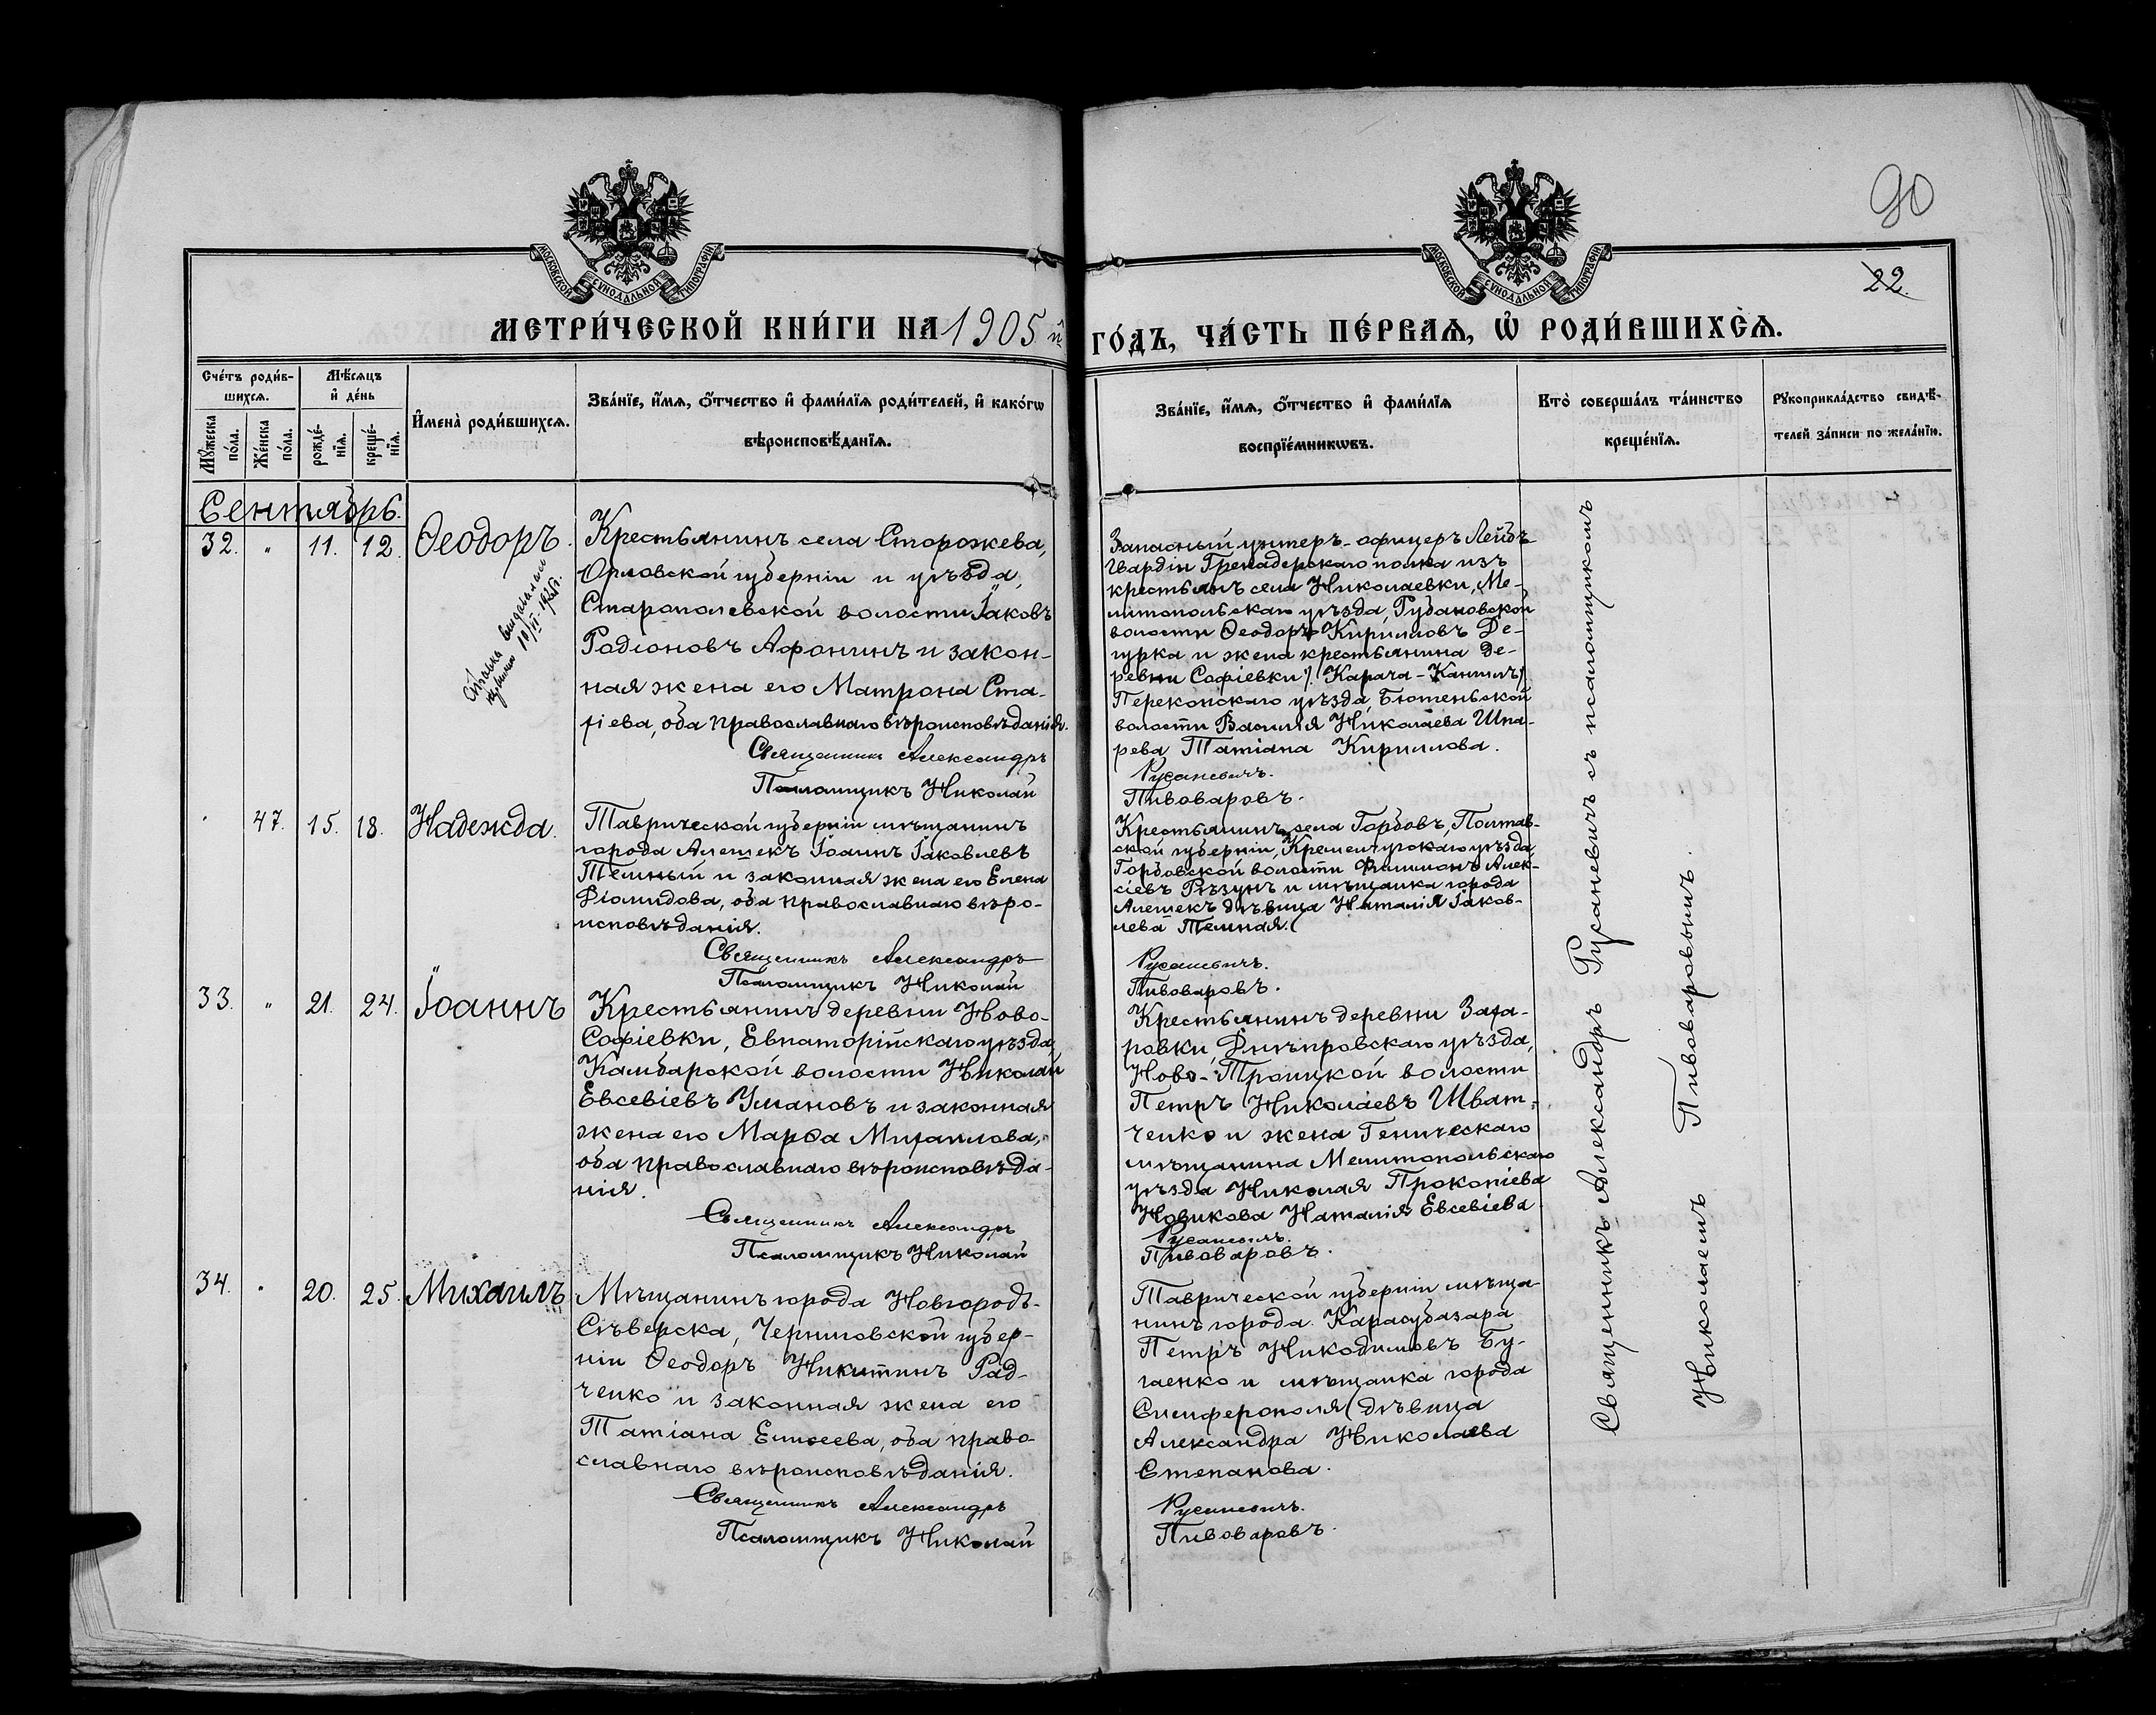 90
22.
МОСКОВСКОЙ СѴНОДАЛЬНОЙ ТИПОГРАФІИ
МОСКОВСКОЙ СѴНОДАЛЬНОЙ ТИПОГРАФІИ
МЕТРИ́ЧЕСКОЙ КНИ́ГИ НА 1905 й
ГО́ДЪ, ЧА́СТЬ ПЕ́РВАѦ, Ѽ РОДИ́ВШИХСѦ.
Сче́тъ роди́в-
шихсѧ.
Мѣ́сѧцъ
и҆ де́нь
Мꙋ́жеска
по́ла.
Же́нска
по́ла.
рожде́-
нїѧ.
креще́-
нїѧ.
И҆мена̀ роди́вшихсѧ.
Зва́нїе, и҆́мѧ, ѻ҆́тчество и҆ фами́лїѧ роди́телей, и҆ како́гѡ
вѣроисповѣ́данїѧ.
Зва́нїе, и҆́мѧ, ѻ҆́тчество и҆ фами́лїѧ
воспрїе́мникѡвъ.
Кто̀ соверша́лъ та́инство
креще́нїѧ.
Рꙋкоприкла́дство свидѣ́-
телей за́писи по жела́нїю.
Сентябрь.
32. " 11. 12. Ѳеодоръ.
Крестьянинъ села Сторожева,
Орловской губерніи и уѣзда,
Старополевской волости Іаковъ
Родіоновъ Афонинъ и закон-
ная жена его Матрона Ста-
хіева, оба православнаго вѣроисповѣданія.
Священникъ Александръ
Псаломщикъ Николай
Запасный унтеръ-офицеръ Лейбъ
Гвардіи Гренадерскаго полка изъ
крестьянъ села Николаевки, Ме-
литопольскаго уѣзда, Рубановской
волости Ѳеодоръ Кирилловъ Де-
гурка и жена крестьянина де-
ревни Софіевки /. Карача-Кангилъ/
Перекопскаго уѣзда, Бютеньской
волости Василія Николаева Шпа-
рева Татіана Кириллова.
Русаневичъ.
Пивоваровъ.
47. 15. 18. Надежда.
Таврической губерніи мѣщанинъ
города Алешекъ Іоаннъ Іаковлевъ
Темный и законная жена его Елена
Діомидова, оба православнаго вѣро-
исповѣданія.
Священникъ Александръ
Псаломщикъ Николай
Крестьянинъ села Горбовъ, Полтав-
ской губерніи, Кременчугскаго уѣзда,
Горбовской волости Филимонъ Алек-
сіевъ Рѣзунъ и мѣщанка города
Алешекъ дѣвица Наталія Іаков-
лева Темная.
Русаневичъ.
Пивоваровъ.
33. " 21. 24. Іоаннъ
Крестьянинъ деревни Ново-
Софіевки, Евпаторійскаго уѣзда,
Камбарской волости Николай
Евсевіевъ Умановъ и законная
жена его Марѳа Михаилова,
оба православнаго вѣроисповѣда-
нія.
Священникъ Александръ
Псаломщикъ Николай
Крестьянинъ деревни Заха-
ровки, Днѣпровскаго уѣзда,
Ново-Троицкой волости
Петръ Николаевъ Шват-
ченко и жена Геническаго
мѣщанина Мелитопольскаго
уѣзда Николая Прокопіева
Новикова Наталія Евсевіева.
Русаневичъ.
Пивоваровъ.
34. " 20. 25. Михаилъ
Мѣщанинъ города Новгородъ-
Сѣверска, Черниговской губер-
ніи Ѳеодоръ Никитинъ Рад-
ченко и законная жена его
Татіана Елисеева, оба право-
славнаго вѣроисповѣданія.
Священникъ Александръ
Псаломщикъ Николай
Таврической губерніи мѣща-
нинъ города Карасубазара
Петръ Никодимовъ Бу-
гаенко и мѣщанка города
Симферополя дѣвица
Александра Николаева
Степанова.
Русаневичъ.
Пивоваровъ.
Священникъ Александръ Русаневичъ съ псаломщикомъ
Николаемъ Пивоваровымъ.